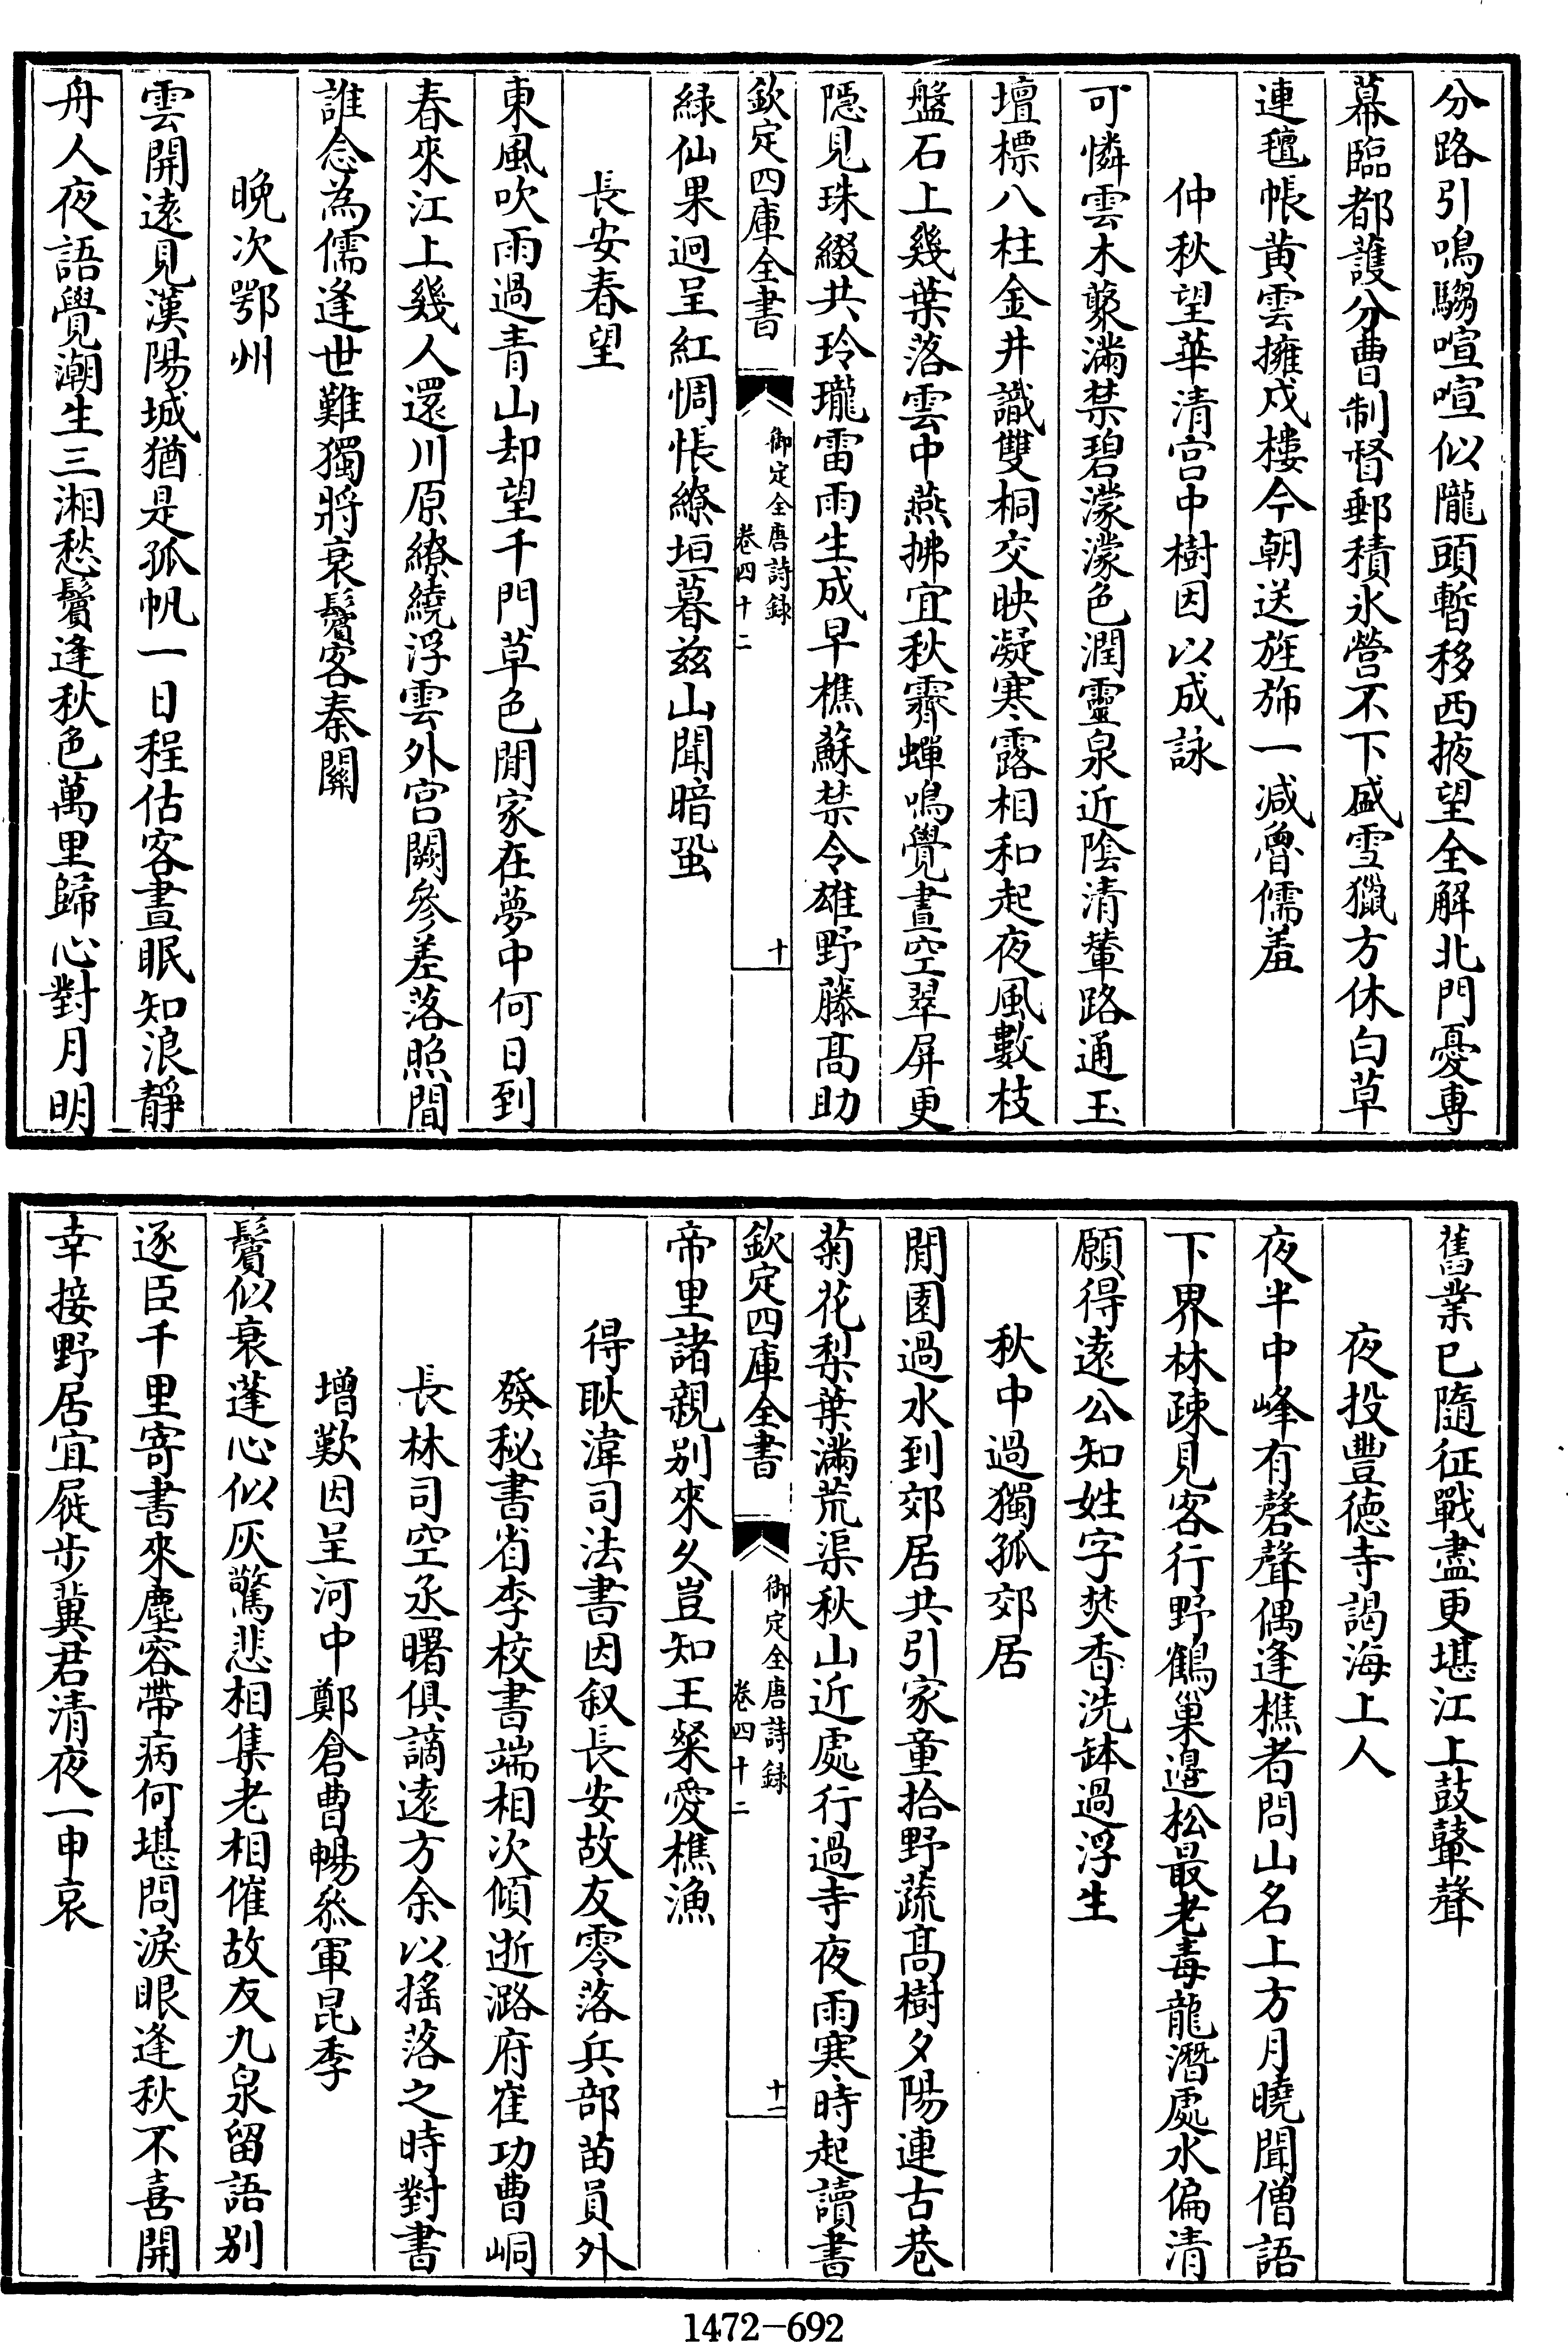 分路引鳴騶喧喧似隴頭暫移西掖望全解北門憂專
幕臨都護分曹制督郵積氷營不下盛雪獵方休白草
連氊帳黄雲擁戍樓今朝送旌斾一减魯儒羞
仲秋望華清宫中樹因以成詠
可憐雲木藂滿禁碧濛濛色潤靈泉近隂清輦路通玉
壇標八柱金井識雙桐交映凝寒露相和起夜風數枝
盤石上幾葉落雲中燕拂宜秋霽蟬鳴覺晝空翠屏更
隠見珠綴共玲瓏雷雨生成早樵蘇禁令雄野藤髙助
欽定四庫全書
御定全唐詩録
卷四十二
十
緑仙果迥呈紅惆悵繚垣暮兹山聞暗蛩
長安春望
東風吹雨過青山却望千門草色閒家在夢中何日到
春來江上幾人還川原繚繞浮雲外宫闕參差落照間
誰念為儒逢世難獨將衰鬢客秦關
晚次鄂州
雲開逺見漢陽城猶是孤帆一日程估客晝眠知浪靜
舟人夜語覺潮生三湘愁鬢逢秋色萬里歸心對月明
舊業已隨征戰盡更堪江上鼓鼙聲
夜投豐德寺謁海上人
夜半中峰有磬聲偶逢樵者問山名上方月曉聞僧語
下界林疎見客行野鶴巢邉松最老毒龍潛處水偏清
願得逺公知姓字焚香洗鉢過浮生
秋中過獨孤郊居
閒園過水到郊居共引家童拾野蔬髙樹夕陽連古巷
菊花梨葉滿荒渠秋山近處行過寺夜雨寒時起讀書
欽定四庫全書
御定全唐詩録
卷四十二
十一
帝里諸親别來乆豈知王粲愛樵漁
得耿湋司法書因叙長安故友零落兵部苗員外
發秘書省李校書端相次傾逝潞府崔功曹峒
長林司空丞曙俱謫逺方余以摇落之時對書
增歎因呈河中鄭倉曹暢叅軍昆季
鬢似衰蓬心似灰驚悲相集老相催故友九泉留語别
逐臣千里寄書來塵容帶病何堪問淚眼逢秋不喜開
幸接野居宜屣步冀君清夜一申哀
1472-692